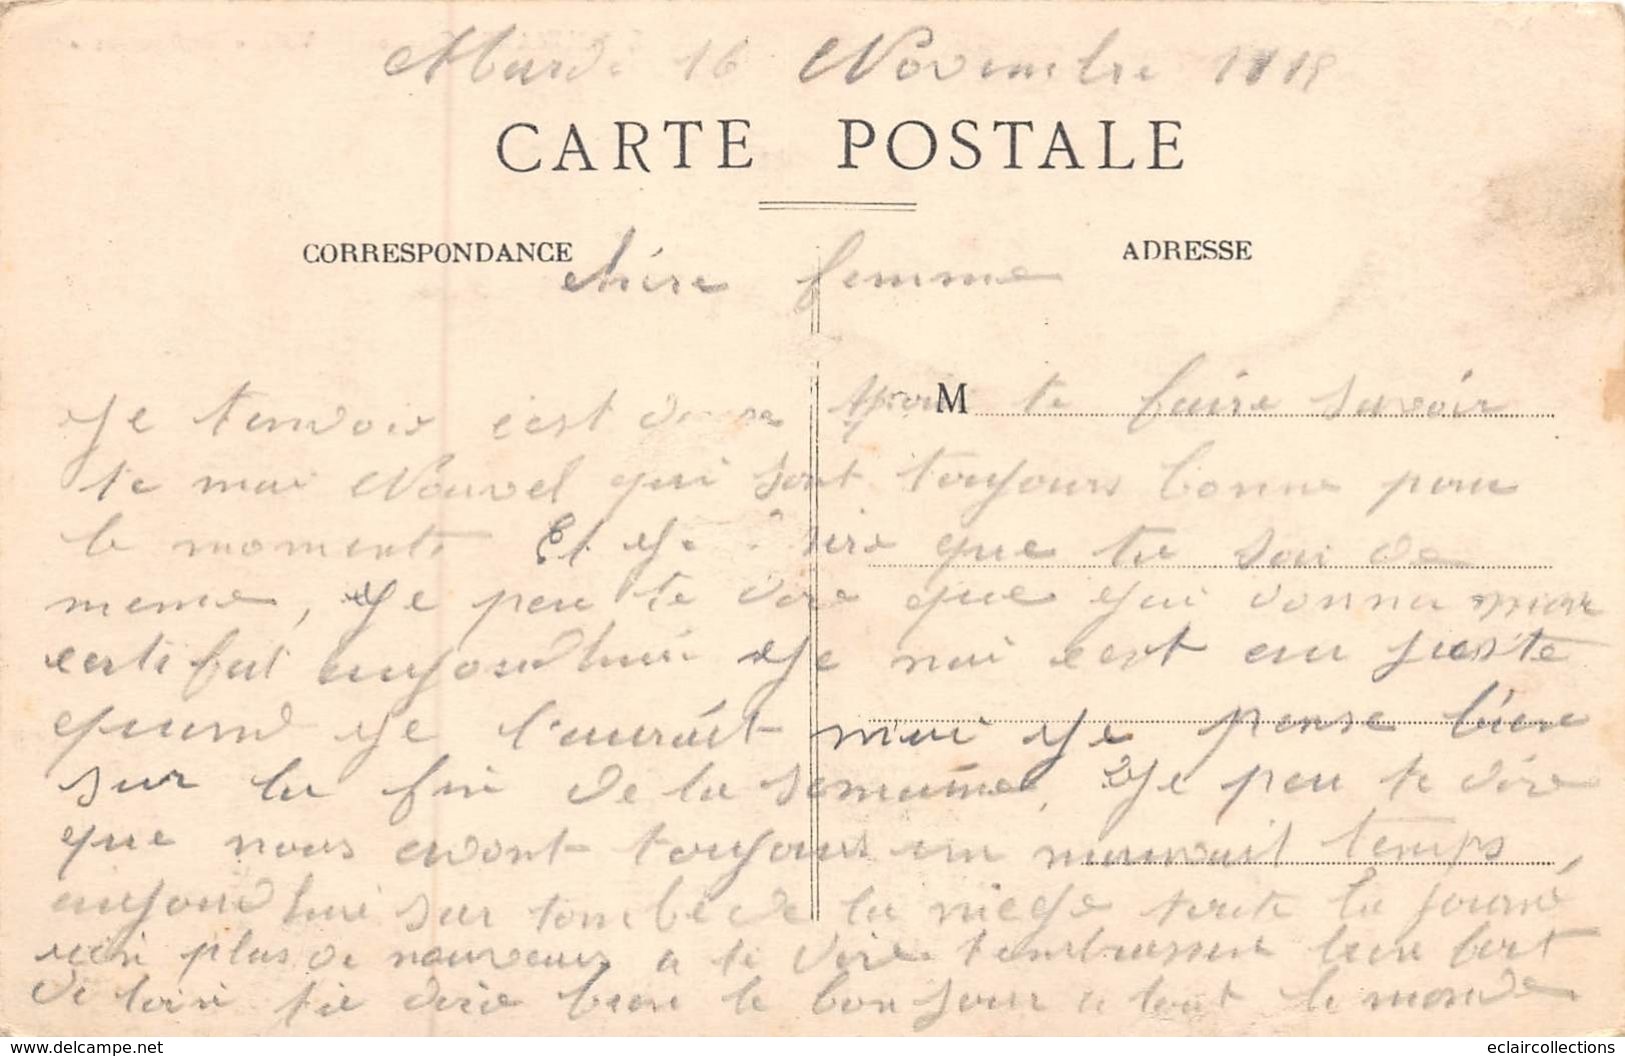 Mardi 16 Novembre
CARTE POSTALE
CORRESPONDANCE
ADRESSE
chère femme
M
Je tenvoie c'est pour te faire savoir
te mai Nouvel qui sont toujours bonne pour
le moments Et Je que tu soi de
meme, Je peu te dire que jai donna mon
certifat aujourdhui Je nai cest eu juste
quand je l'aurait mai Je pense bien
sur la fin de la semaine, Je peu te dire
que nous avont toujours un mauvait temps,
aujourdhui sur tombe de la niege toute la journé
rien plus de nouveau a te dire tembrassent bien fort
de loin tu dira bien le bonjour a tout le monde
www.delcampe.net
eclaircollections